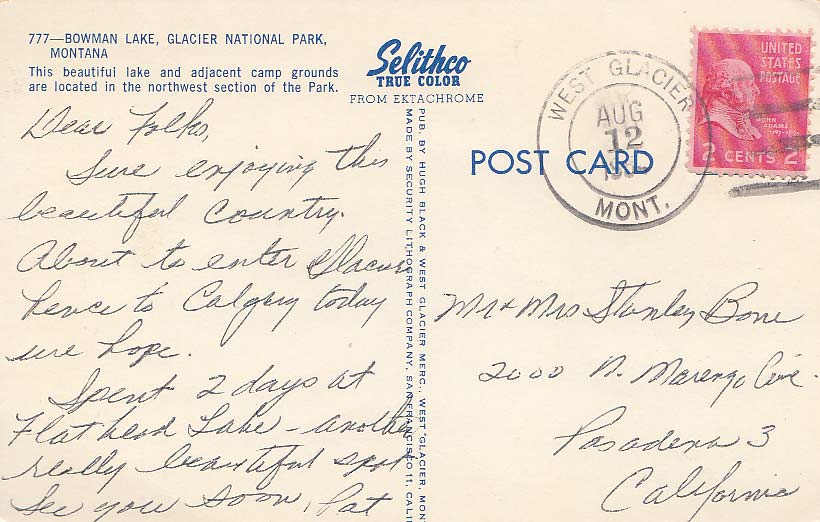 777—BOWMAN LAKE, GLACIER NATIONAL PARK,
MONTANA
This beautiful lake and adjacent camp grounds
are located in the northwest section of the Park.
Selithco
TRUE COLOR
FROM EKTACHROME
Dear Folks,
Sure enjoying this
beautiful country.
About to enter Glacier
hence to Calgary today
we hope.
Spent 2 days at
Flathead Lake - another
really beautiful spot
See you soon, Pat
PUB. BY HUGH BLACK & WEST GLACIER MERC., WEST GLACIER, MON
MADE BY SECURITY LITHOGRAPH COMPANY, SAN FRANCISCO 11, CALI
POST CARD
WEST GLACIER
AUG
12
MONT.
UNITED
STATES
POSTAGE
JOHN
ADAMS
2 CENTS 2
Mr & Mrs Stanley Bone
2000 N. Marengo Ave.
Pasadena 3
California